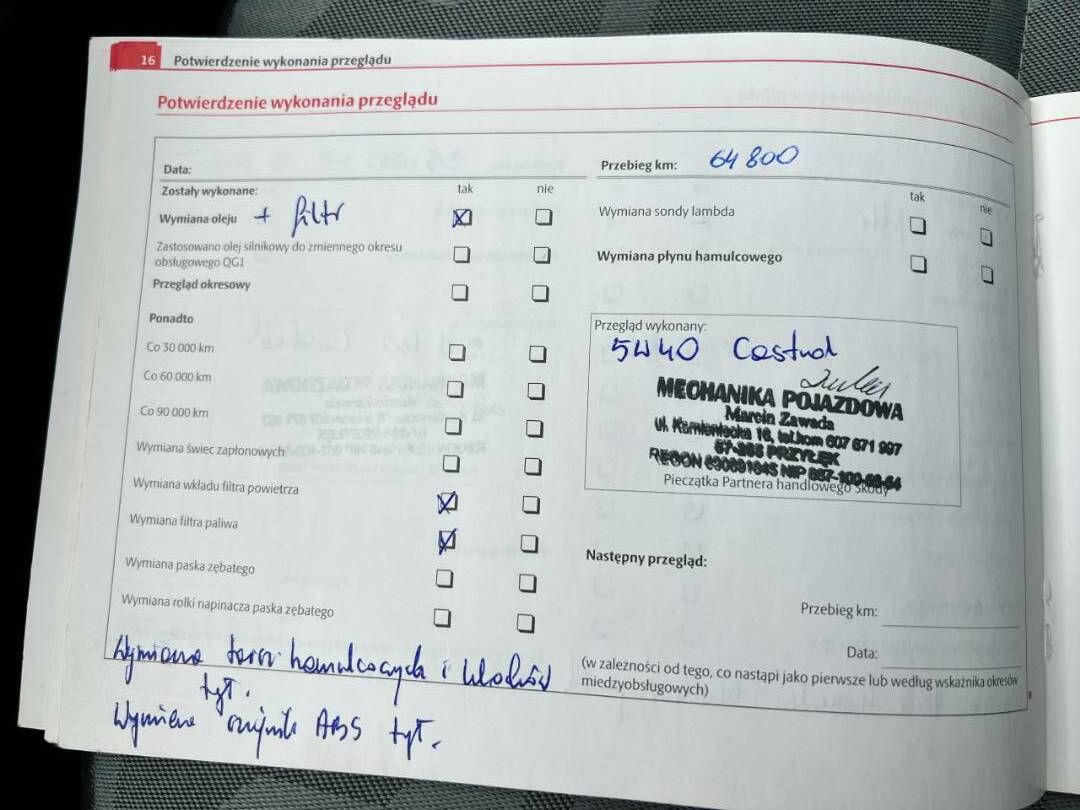 16 Potwierdzenie wykonania przeglądu
Potwierdzenie wykonania przeglądu
Data:
Zostały wykonane: tak nie
Wymiana oleju + filtr
Zastosowano olej silnikowy do zmiennego okresu
obsługowego QG1
Przegląd okresowy
Ponadto
Co 30 000 km
Co 60 000 km
Co 90 000 km
Wymiana świec zapłonowych
Wymiana wkładu filtra powietrza
Wymiana filtra paliwa
Wymiana paska zębatego
Wymiana rolki napinacza paska zębatego
Wymiana tarcz hamulcowych i klocków
tył.
Wymiana czujnik ABS tył.
Przebieg km: 64 800
tak nie
Wymiana sondy lambda
Wymiana płynu hamulcowego
Przegląd wykonany:
5W40 Castrol
MECHANIKA POJAZDOWA
Marcin Zawada
ul. Kamieniecka 16, tel.kom 607 671 997
PRZYŁĘK
REGON NIP
Pieczątka Partnera handlowego Skody
Następny przegląd:
Przebieg km:
Data:
(w zależności od tego, co nastąpi jako pierwsze lub według wskaźnika okresów
miedzyobsługowych)